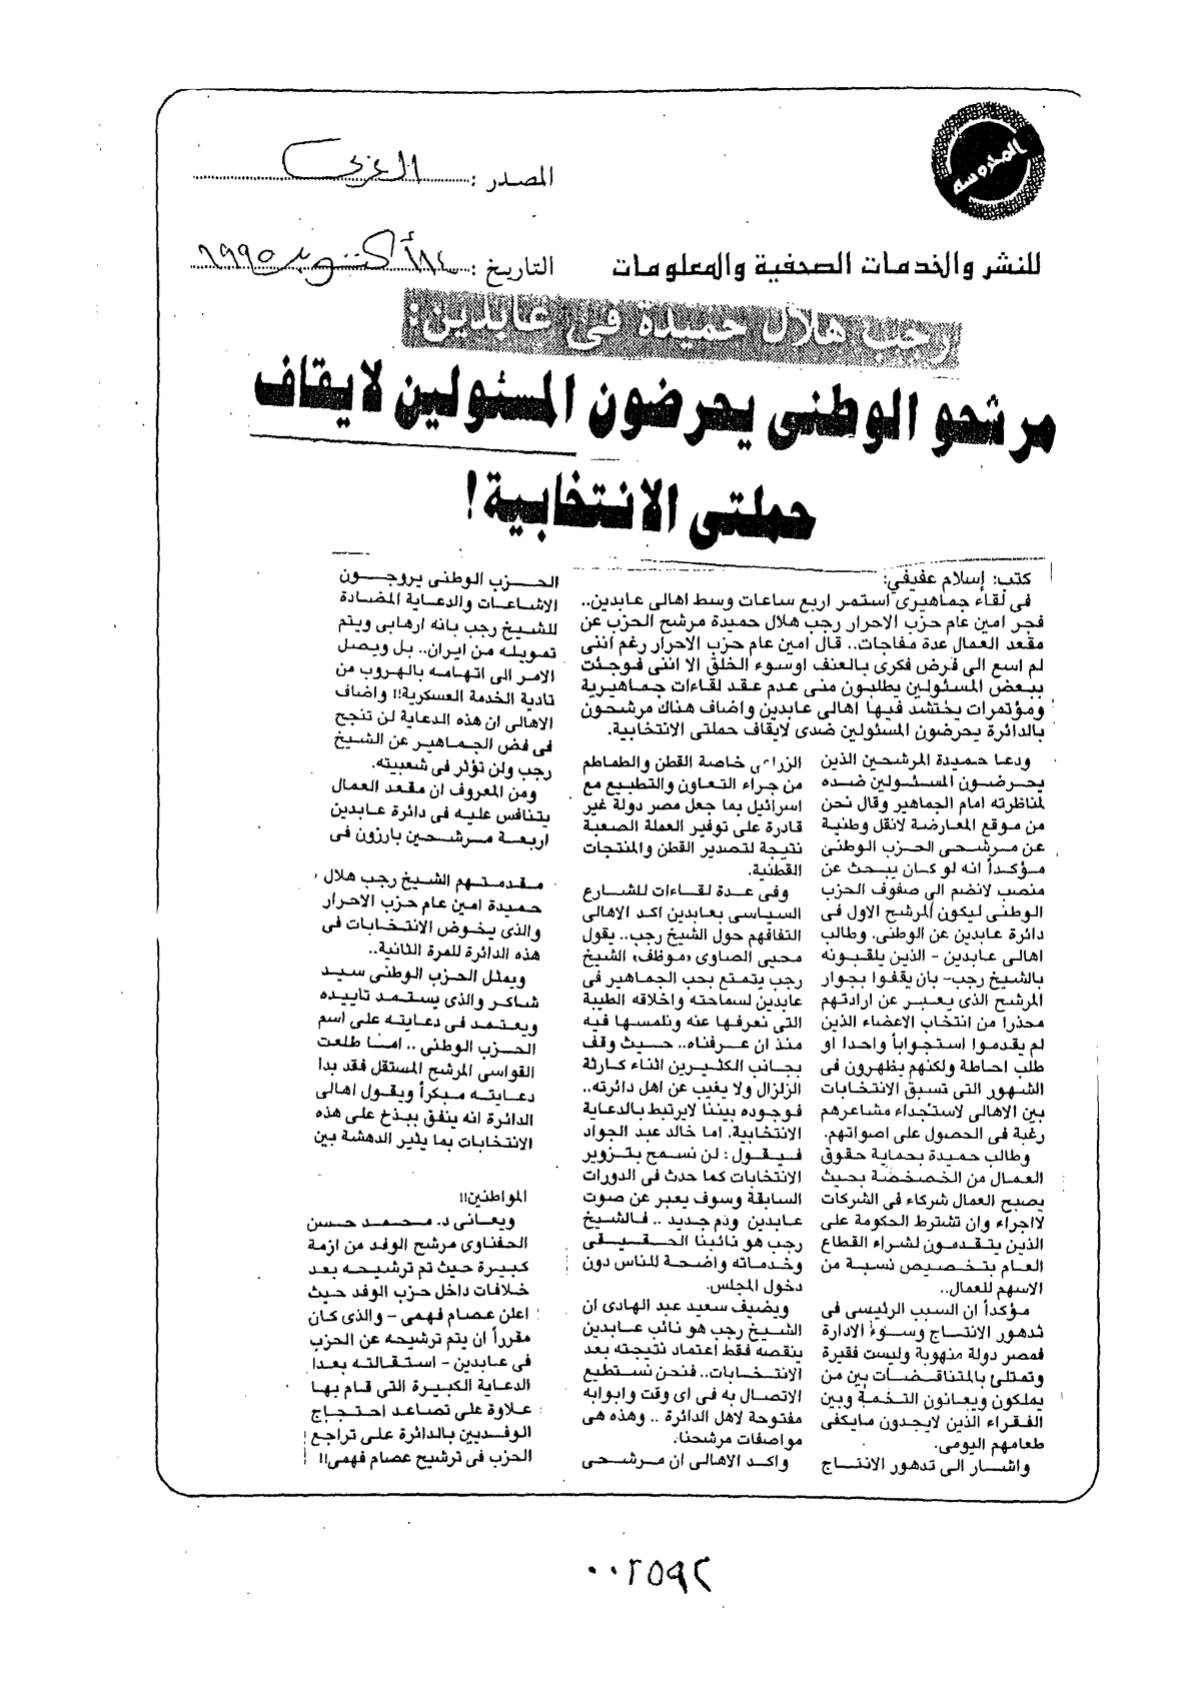 المحروسة
المصدر :
التاريخ : ١٤ أكتوبر ١٩٩٥
للنشر والخدمات الصحفية والمعلومات
رجب هلال حميدة فى عابدين:
مرشحو الوطنى يحرضون المسئولين لايقاف
حملتى الانتخابية!
كتب: إسلام عفيفي:
فى لقاء جماهيرى استمر اربع ساعات وسط اهالى عابدين..
فجر امين عام حزب الاحرار رجب هلال حميدة مرشح الحزب عن
مقعد العمال عدة مفاجات.. قال امين عام حزب الاحرار رغم أننى
لم اسع الى فرض فكرى بالعنف اوسوء الخلق الا اننى فوجئت
ببعض المسئولين يطلبون منى عدم عقد لقاءات جماهيرية
ومؤتمرات يحتشد فيها اهالى عابدين واضاف هناك مرشحون
بالدائرة يحرضون المسئولين ضدى لايقاف حملتى الانتخابية.
ودعا حميدة المرشحين الذين
يحرضون المسئولين ضده
لمناظرته امام الجماهير وقال نحن
من موقع المعارضة لانقل وطنية
عن مرشحى الحزب الوطنى
مؤكداً انه لو كان يبحث عن
منصب لانضم الى صفوف الحزب
الوطنى ليكون المرشح الاول فى
دائرة عابدين عن الوطنى. وطالب
اهالى عابدين - الذين يلقبونه
بالشيخ رجب- بان يقفوا بجوار
المرشح الذى يعبر عن ارادتهم
محذرا من انتخاب الاعضاء الذين
لم يقدموا استجواباً واحدا او
طلب احاطة ولكنهم يظهرون فى
الشهور التى تسبق الانتخابات
بين الاهالى لاستجداء مشاعرهم
رغبة فى الحصول على اصواتهم.
وطالب حميدة بحماية حقوق
العمال من الخصخصة بحيث
يصبح العمال شركاء فى الشركات
لااجراء وان تشترط الحكومة على
الذين يتقدمون لشراء القطاع
العام بتخصيص نسبة من
الاسهم للعمال..
مؤكداً ان السبب الرئيسى فى
تدهور الانتاج وسوء الادارة
فمصر دولة منهوبة وليست فقيرة
وتمتلئ بالمتناقضات بين من
يملكون ويعانون التخمة وبين
الفقراء الذين لايجدون مايكفى
طعامهم اليومى.
واشار الى تدهور الانتاج
الزراعى خاصة القطن والطماطم
من جراء التعاون والتطبيع مع
اسرائيل بما جعل مصر دولة غير
قادرة على توفير العملة الصعبة
نتيجة لتصدير القطن والمنتجات
القطنية.
وفى عدة لقاءات للشارع
السياسى بعابدين اكد الاهالى
التفافهم حول الشيخ رجب.. يقول
محيى الصاوى «موظف» الشيخ
رجب يتمتع بحب الجماهير فى
عابدين لسماحته واخلاقه الطيبة
التى نعرفها عنه ونلمسها فيه
منذ ان عرفناه.. حيث وقف
بجانب الكثيرين اثناء كارثة
الزلزال ولا يغيب عن اهل دائرته..
فوجوده بيننا لايرتبط بالدعاية
الانتخابية. اما خالد عبد الجواد
فيقول : لن نسمح بتزوير
الانتخابات كما حدث فى الدورات
السابقة وسوف يعبر عن صوت
عابدين ودم جديد .. فالشيخ
رجب هو نائبنا الحقيقى
وخدماته واضحة للناس دون
دخول المجلس.
ويضيف سعيد عبد الهادى ان
الشيخ رجب هو نائب عابدين
ينقصه فقط اعتماد نتيجته بعد
الانتخابات.. فنحن نستطيع
الاتصال به فى اى وقت وابوابه
مفتوحة لاهل الدائرة .. وهذه هى
مواصفات مرشحنا.
واكد الاهالى ان مرشحى
الحزب الوطنى يروجون
الاشاعات والدعاية المضادة
للشيخ رجب بانه ارهابى ويتم
تمويله من ايران.. بل ويصل
الامر الى اتهامه بالهروب من
تادية الخدمة العسكرية!! واضاف
الاهالى ان هذه الدعاية لن تنجح
فى فض الجماهير عن الشيخ
رجب ولن تؤثر فى شعبيته.
ومن المعروف ان مقعد العمال
يتنافس عليه فى دائرة عابدين
اربعة مرشحين بارزون فى
مقدمتهم الشيخ رجب هلال
حميدة امين عام حزب الاحرار
والذى يخوض الانتخابات فى
هذه الدائرة للمرة الثانية..
ويمثل الحزب الوطنى سيد
شاكر والذى يستمد تاييده
ويعتمد فى دعايته على اسم
الحزب الوطنى .. امـا طلعت
القواسى المرشح المستقل فقد بدا
دعايته مبكراً ويقول اهالى
الدائرة انه ينفق ببذخ على هذه
الانتخابات بما يثير الدهشة بين
المواطنين!!
ويعانى د. محمد حسن
الحفناوى مرشح الوفد من ازمة
كبيرة حيث تم ترشيحه بعد
خلافات داخل حزب الوفد حيث
اعلن عصام فهمى - والذى كان
مقرراً ان يتم ترشيحه عن الحزب
فى عابدين - استقالته بعدا
الدعاية الكبيرة التى قام بها
علاوة على تصاعد احتجاج
الوفديين بالدائرة على تراجع
الحزب فى ترشيح عصام فهمى!!
٠٠٢٥٩٢